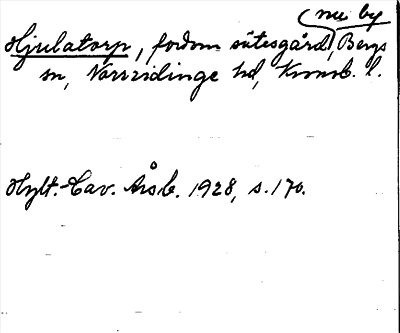 (nu by
Hjulatorp, fordom sätesgård, Bergs
sn, Norrvidinge hd, Kronob. l.
Hylt.-Cav. Årsb. 1928, s. 170.